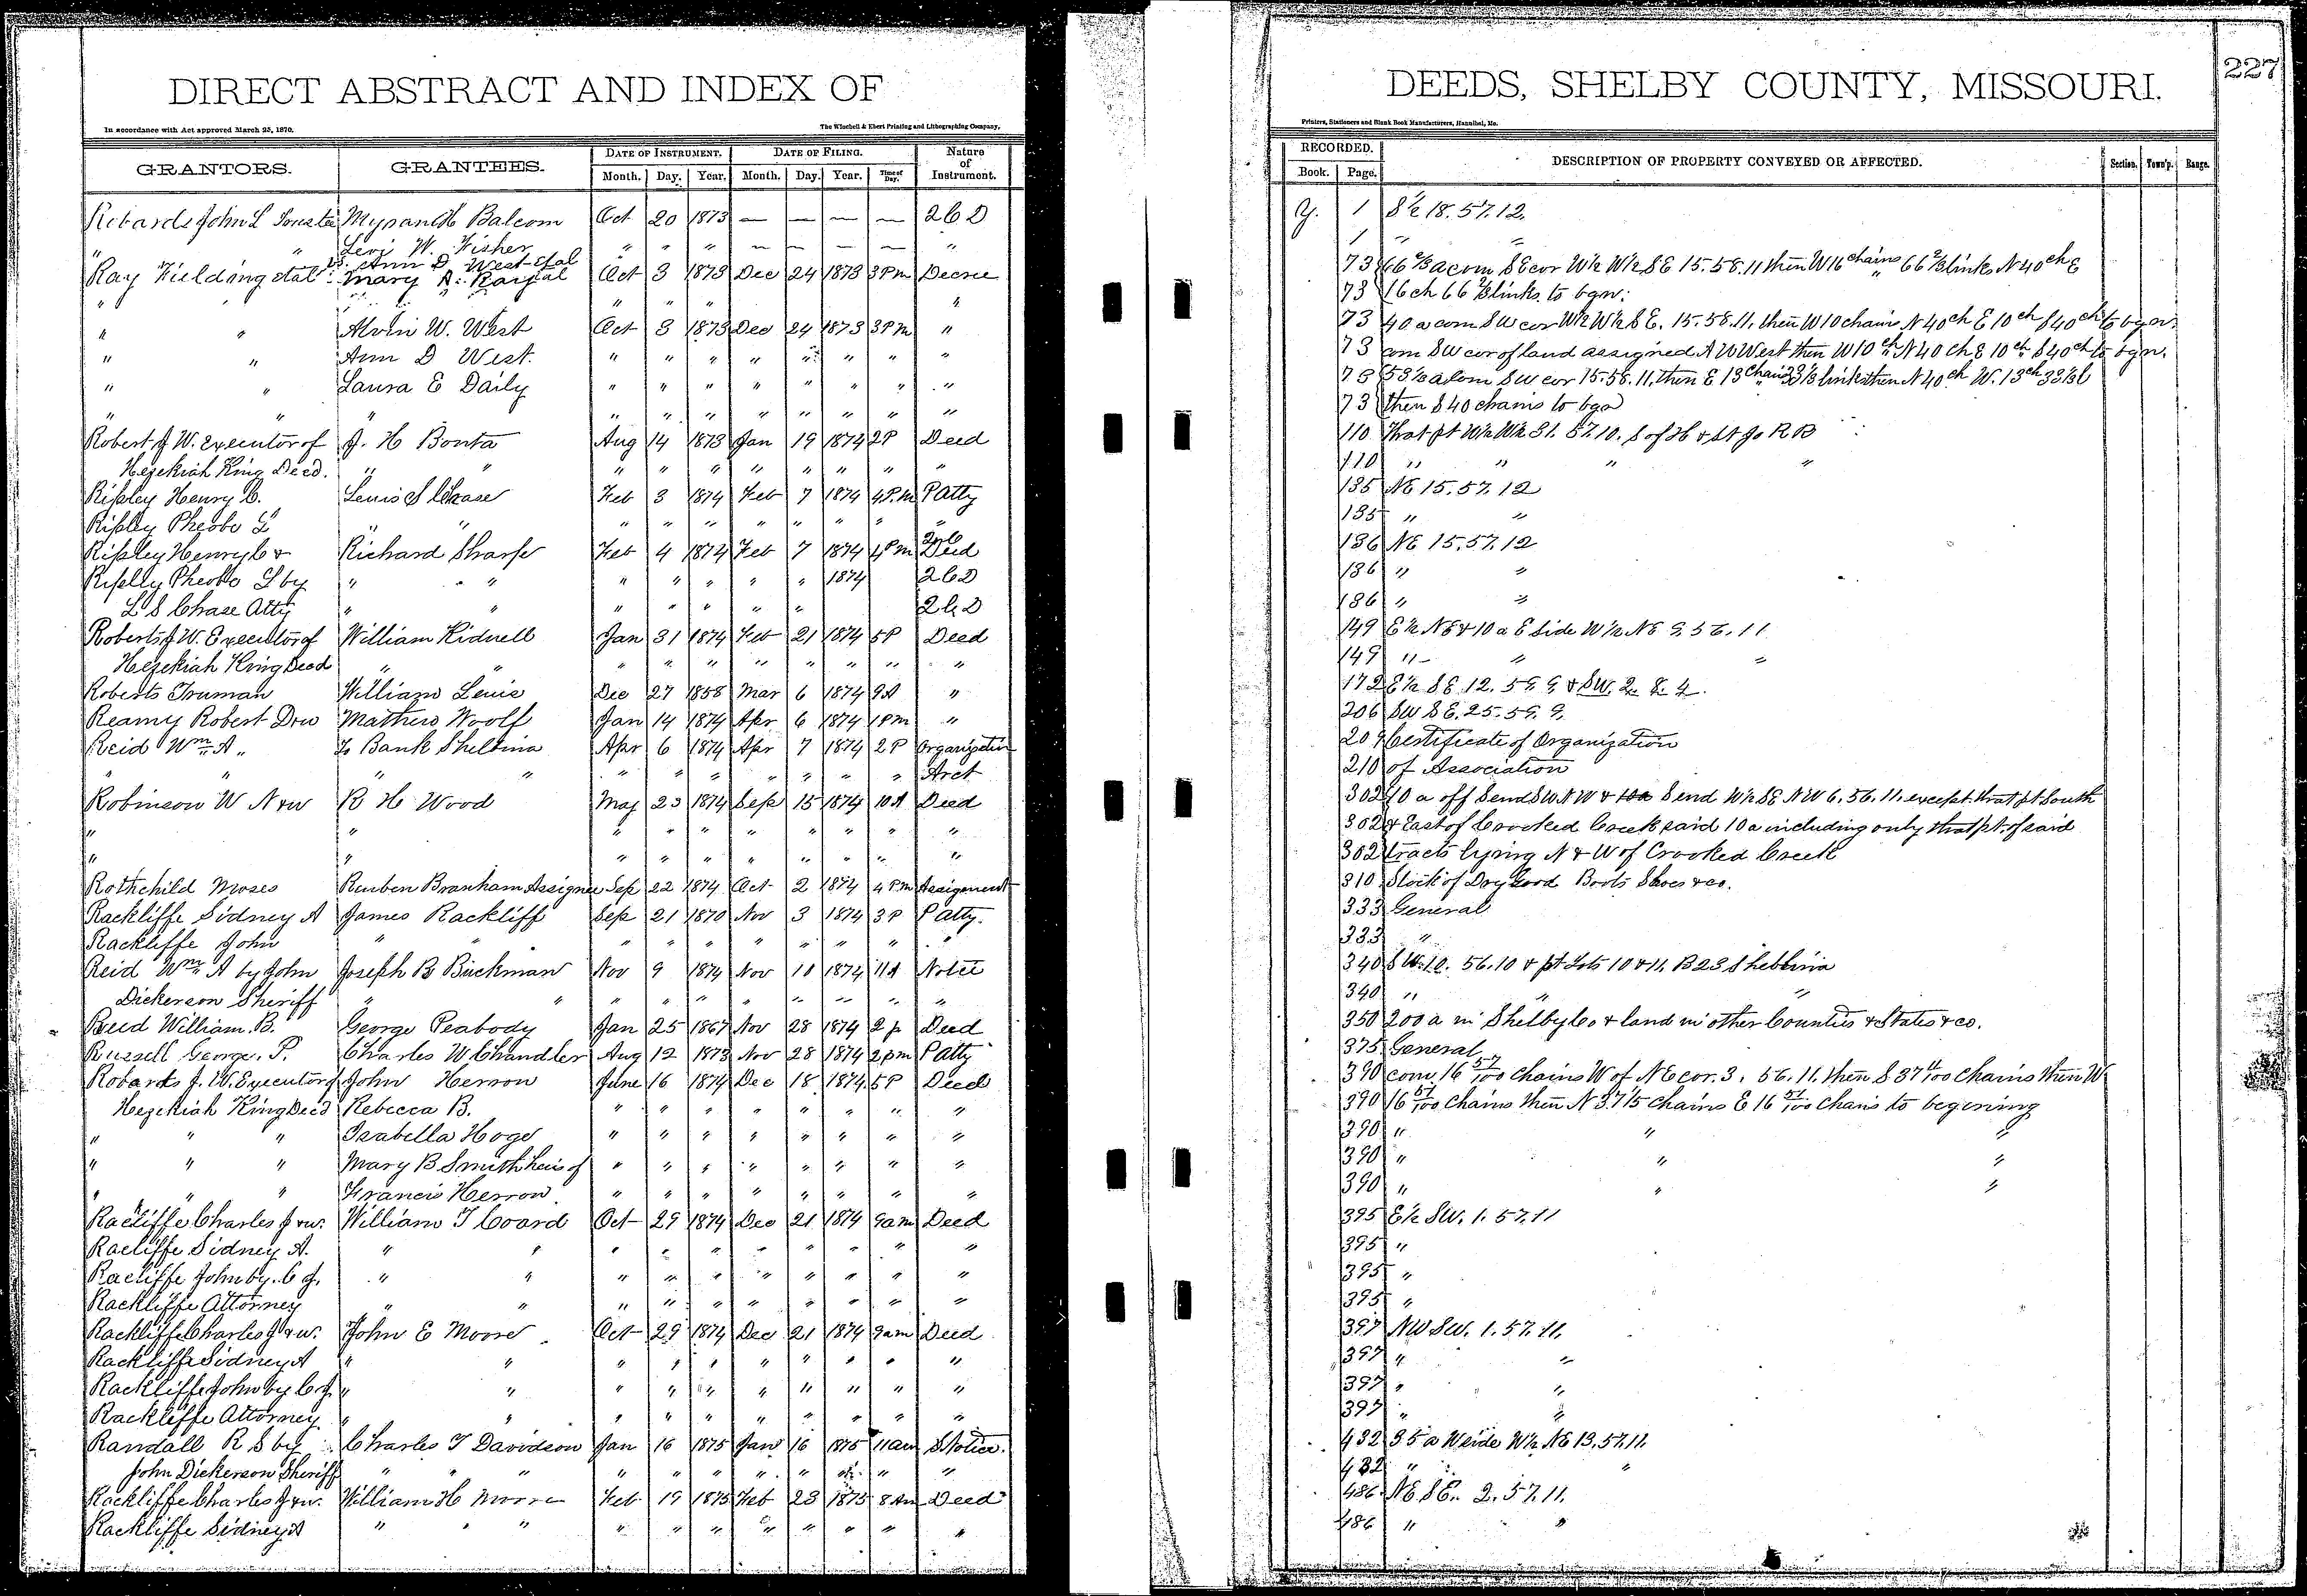 227
DIRECT ABSTRACT AND INDEX OF DEEDS, SHELBY COUNTY, MISSOURI.
In accordance with Act approved March 25, 1870. The Winchell & Ebert Printing and Lithographing Company, Printers, Stationers and Blank Book Manufacturers, Hannibal, Mo.
GRANTORS. GRANTEES. DATE OF INSTRUMENT. DATE OF FILING. Nature of Instrument. RECORDED. DESCRIPTION OF PROPERTY CONVEYED OR AFFECTED. Section. Town'p. Range.
Month. Day. Year. Month. Day. Year. Time of Day. Book. Page.
Robards John L Myran H Balcom Oct 20 1873 — — — — 2 C D Y. 1 S½ 18. 57. 12.
" " Levi W. Fisher " " " — — — — " 1 "
Ann D West et al
Ray Fielding et al Mary A. Ray et al Oct 3 1873 Dec 24 1873 3 Pm Decree 73 66⅔ a com SE cor W½ W½ SE 15. 58. 11 then W 16 chains 66⅔ links N 40 ch E
" " " " " 73 16 ch 66⅔ links to bgn.
" " Alvin W. West Oct 3 1873 Dec 24 1873 3 PM " 73 40 a com SW cor W½ W½ SE. 15. 58. 11, then W 10 chain N 40 ch E 10 ch S 40 ch to bgn.
" " Ann D West. " " " " " " " " 73 com SW cor of land assigned A W West then W 10 ch N 40 ch E 10 ch S 40 ch to bgn.
" " Laura E Daily " " " " " " " " 73 53⅓ a com SW cor 15. 58. 11, then E 13 chain 33⅓ links then N 40 ch W. 13 ch 33⅓ l
" " " " " " " " " " " 73 then S 40 chains to bgn
Robert J W. Executor of J. H Bonta Aug 14 1873 Jan 19 1874 2 P Deed 110 That pt W½ W½ 31. 57. 10. S of H & St Jo R R
Hezekiah King Decd. " " " " " " " " " " 110 " " " "
Ripley Henry C. Lewis S Chase Feb 3 1874 Feb 7 1874 4 P.M P atty 135 NE 15. 57. 12
Ripley Pheobe L " " " " " " " " " " 135 " "
Ripley Henry C & Richard Sharp Feb 4 1874 Feb 7 1874 4 Pm Deed 136 NE 15. 57. 12
Ripelly Pheobe L by " " " " " " " 1874 2 C D 136 " "
L S Chase Atty " " " " " " " 2 C D 136 " "
Roberts J W. Executor of William Kidwell Jan 31 1874 Feb 21 1874 5 P Deed 149 E½ NE & 10 a E side W½ NE 9. 56. 11
Hezekiah King Decd " " " " " " " " " " 149 " " "
Roberts Truman William Lewis Dec 27 1858 Mar 6 1874 9 A " 172 E½ SE 12. 59. 9. & SW. 2. 8. 4.
Reamy Robert D & w Mathew Woolf Jan 14 1874 Apr 6 1874 1 PM " 206 SW SE. 25. 59. 9.
Reid Wm A " To Bank Shelbina Apr 6 1874 Apr 7 1874 2 P Organization 209 Certificate of Organization
" " " " " " " " " " " Arct 210 of Association
Robinson W N & w R H Wood May 23 1874 Sept 15 1874 10 A Deed 302 10 a off S end SW NW & S end W½ SE NW 6. 56. 11. except that pt South
" " " " " " " " " " 302 & East of Crooked Creek said 10 a including only that pt. of said
" " " " " " " " " " 302 tracts lying N & W of Crooked Creek
Rothchild Moses Reuben Branham Assignee Sep 22 1874 Oct 2 1874 4 P.m Assignment 310 Stock of Dry Good Boots Shoes & co.
Rackliffe Sidney A James Rackliff Sep 21 1870 Nov 3 1874 3 P P atty. 333 General
Rackliffe John " " " " " " " " " " 333 "
Reid Wm A by John Joseph B Buckman Nov 9 1874 Nov 10 1874 11 A Notice 340 SW. 10. 56. 10 & pt Lots 10 & 11. B 23 Shelbina
Dickerson Sheriff " " " " " " " " " " 340 " " "
Reed William. B. George Peabody Jan 25 1867 Nov 28 1874 2 p Deed 350 200 a in Shelby Co & land in other Counties & States & co.
Russell George. P. Charles W Chandler Aug 12 1873 Nov 28 1874 2 pm P atty 375 General
Robards J. W. Executor of John Herron June 16 1874 Dec 18 1874 5 P Deed 390 com. 16 57/100 chains W of NE cor. 3. 56. 11. then S 37 4/100 chains then W
Hezekiah King Decd Rebecca B. " " " " " " " " 390 16 57/100 chains then N 37 15 chains E 16 57/100 chains to begening
" " " Isabella Hoge " " " " " " " " 390 " " "
" " " Mary B Smith heirs of " " " " " " " " 390 " " "
" " " Francis Herron. " " " " " " " " 390 " " "
Racliffe Charles J & w. William T Coard Oct 29 1874 Dec 21 1874 9 am Deed 395 E½ SW. 1. 57. 11
Racliffe Sidney A. " " " " " " " " " " 395 "
Racliffe John by. C J. " " " " " " " " " " 395 "
Rackliffe Attorney " " " " " " " " " " 395 "
Rackliffe Charles J & w. John E Moore Oct 29 1874 Dec 21 1874 9 am Deed 397 NW SW. 1. 57. 11.
Rackliffe Sidney A " " " " " " " " " " 397 " "
Rackliffe John by C J. " " " " " " " " " " 397 " "
Rackliffe Attorney " " " " " " " " " " 397 " "
Randall R S by Charles T Davidson Jan 16 1875 Jan 16 1875 11 am Notice. 432 35 a W side W½ NE 13. 57. 11.
John Dickerson Sheriff " " " " " " " " " " 432 " "
Rackliffe Charles J & w. William H Moore Feb 19 1875 Feb 23 1875 8 Am Deed 486 NE SE. 2. 57. 11.
Rackliffe Sidney A " " " " " " " " " " 486 " "